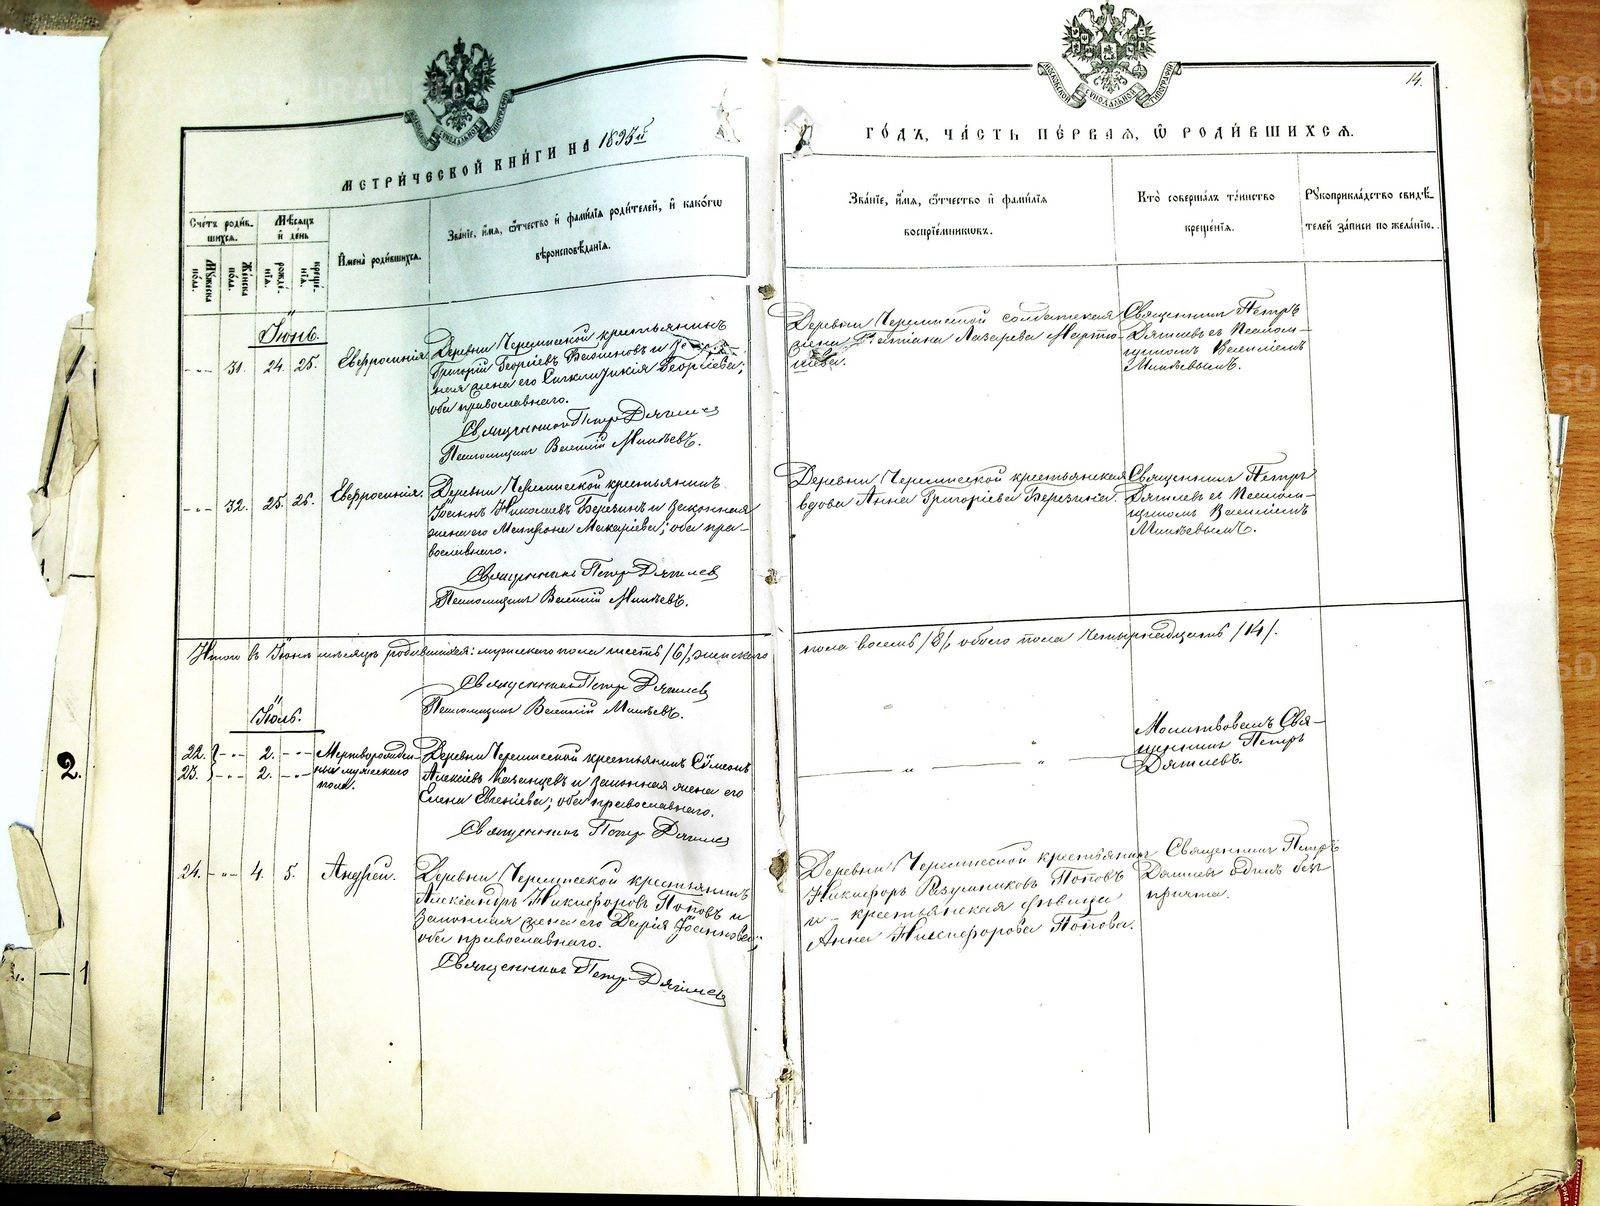 МОСКОВСКОЙ СѴНОДАЛЬНОЙ ТИПОГРАФІИ
МОСКОВСКОЙ СѴНОДАЛЬНОЙ ТИПОГРАФІИ
14.
МЕТРИ́ЧЕСКОЙ КНИ́ГИ НА 1895й
ГО́ДЪ, ЧА́СТЬ ПЕ́РВАЯ, Ѡ РОДИ́ВШИХСѦ.
Сче́тъ роди́в-
шихся.
Мѣ́сяцъ
и҆ де́нь
Мꙋ́жеска
по́ла.
Же́нска
по́ла.
рожде́-
нїя.
креще́-
нїя.
И҆мена̀ роди́вшихся.
Зва́нїе, и҆́мя, ѻ҆́тчество и҆ фами́лїя роди́телей, и҆ како́гѡ
вѣроисповѣ́данїя.
Зва́нїе, и҆́мя, ѻ҆́тчество и҆ фами́лїя
воспрїе́мниковъ.
Кто̀ соверша́лъ та́инство
креще́нїя.
Рꙋкоприкла́дство свидѣ́-
телей за́писи по жела́нїю.
Іюнь.
31. 24. 25. Евфросинія
Деревни Черемисской крестьянинъ
Григорій Георгіевъ и
ная жена его Синклитикія Георгіева;
оба православнаго.
Священникъ Петръ Дягилев
Псаломщик Василій Минѣевъ.
Деревни Черемисской солдатская
жена Татіана Лазарева Марто-
шева.
Священникъ Петръ
Дягилевъ съ Псалом-
щикомъ Василіемъ
Минѣевымъ.
32. 25. 26. Евфросинія
Деревни Черемисской крестьянинъ
Іоаннъ Николаевъ Березинъ и законная
жена его Матрона Макаріева; оба пра-
вославнаго.
Священникъ Петръ Дягилев
Псаломщик Василій Минѣевъ.
Деревни Черемисской крестьянская
вдова Анна Григоріева Березина.
Священникъ Петръ
Дягилевъ съ Псалом-
щикомъ Василіемъ
Минѣевымъ.
Итого въ Іюнѣ мѣсяцѣ родившихся: мужескаго пола шесть /6/, женскаго
пола восемь /8/, обоего пола четырнадцать /14/.
Священникъ Петръ Дягилев
Псаломщик Василій Минѣевъ.
Іюль.
22. 2.
23. 2.
Мертворожден-
ные мужескаго
пола.
Деревни Черемисской крестьянинъ Сѵмеонъ
Алексіевъ Казанцевъ и законная жена его
Елена Евгеніева; оба православнаго.
Священникъ Петръ Дягилев
Молитвовалъ Свя-
щенникъ Петръ
Дягилевъ.
24. 4. 5. Андрей.
Деревни Черемисской крестьянинъ
Александръ Никифоровъ Поповъ и
законная жена его Дарія Іоаннова;
оба православнаго.
Священникъ Петръ Дягилев
Деревни Черемисской крестьянин
Никифоръ Поповъ
и крестьянская дѣвица
Анна Никифорова Попова.
Священникъ Петръ
Дягилев одинъ без
причта.
2.
1